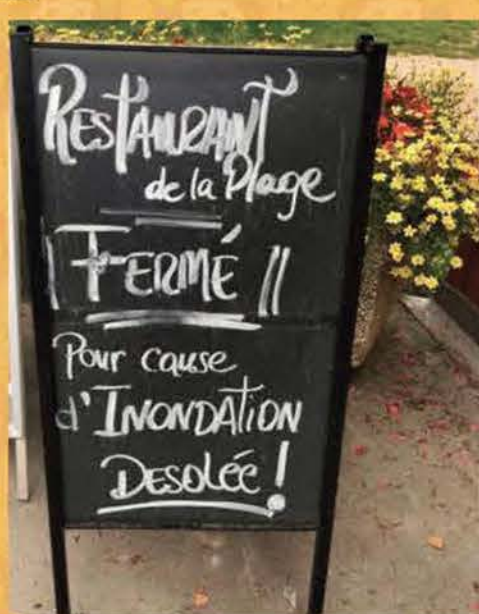 RESTAURANT
de la Plage
FERMÉ !!
Pour cause
d'INONDATION
DESOLÉE!